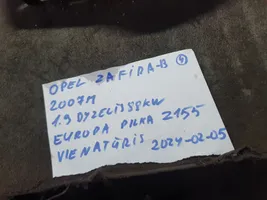 OPEL ZAFIRA-B 4
2007M
1.9 DYZELIS 88KW
EUROPA PILKA Z155
VIENATŪRIS 2024-02-05